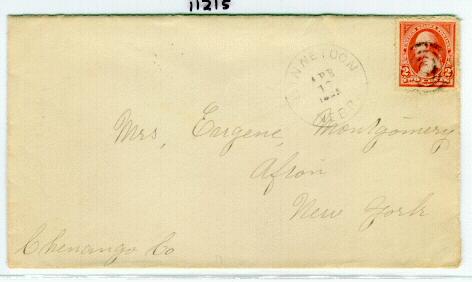 11215
WINNETOON
APR
NEBR
Mrs, Eugene, Montgomery
Afton
New York
Chenango Co